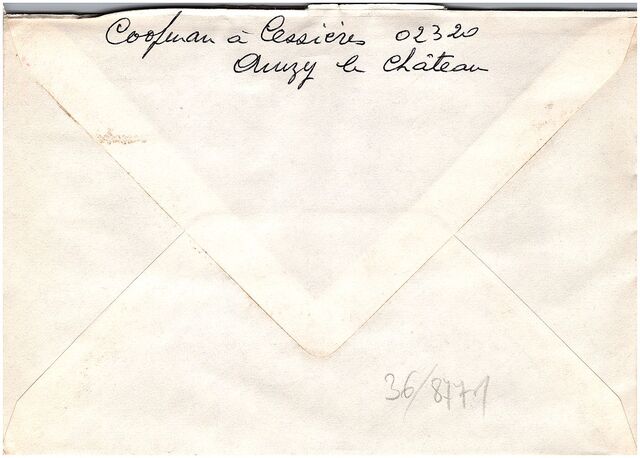 Coofman à Cessières 02320
Anizy le Château
36/877.1